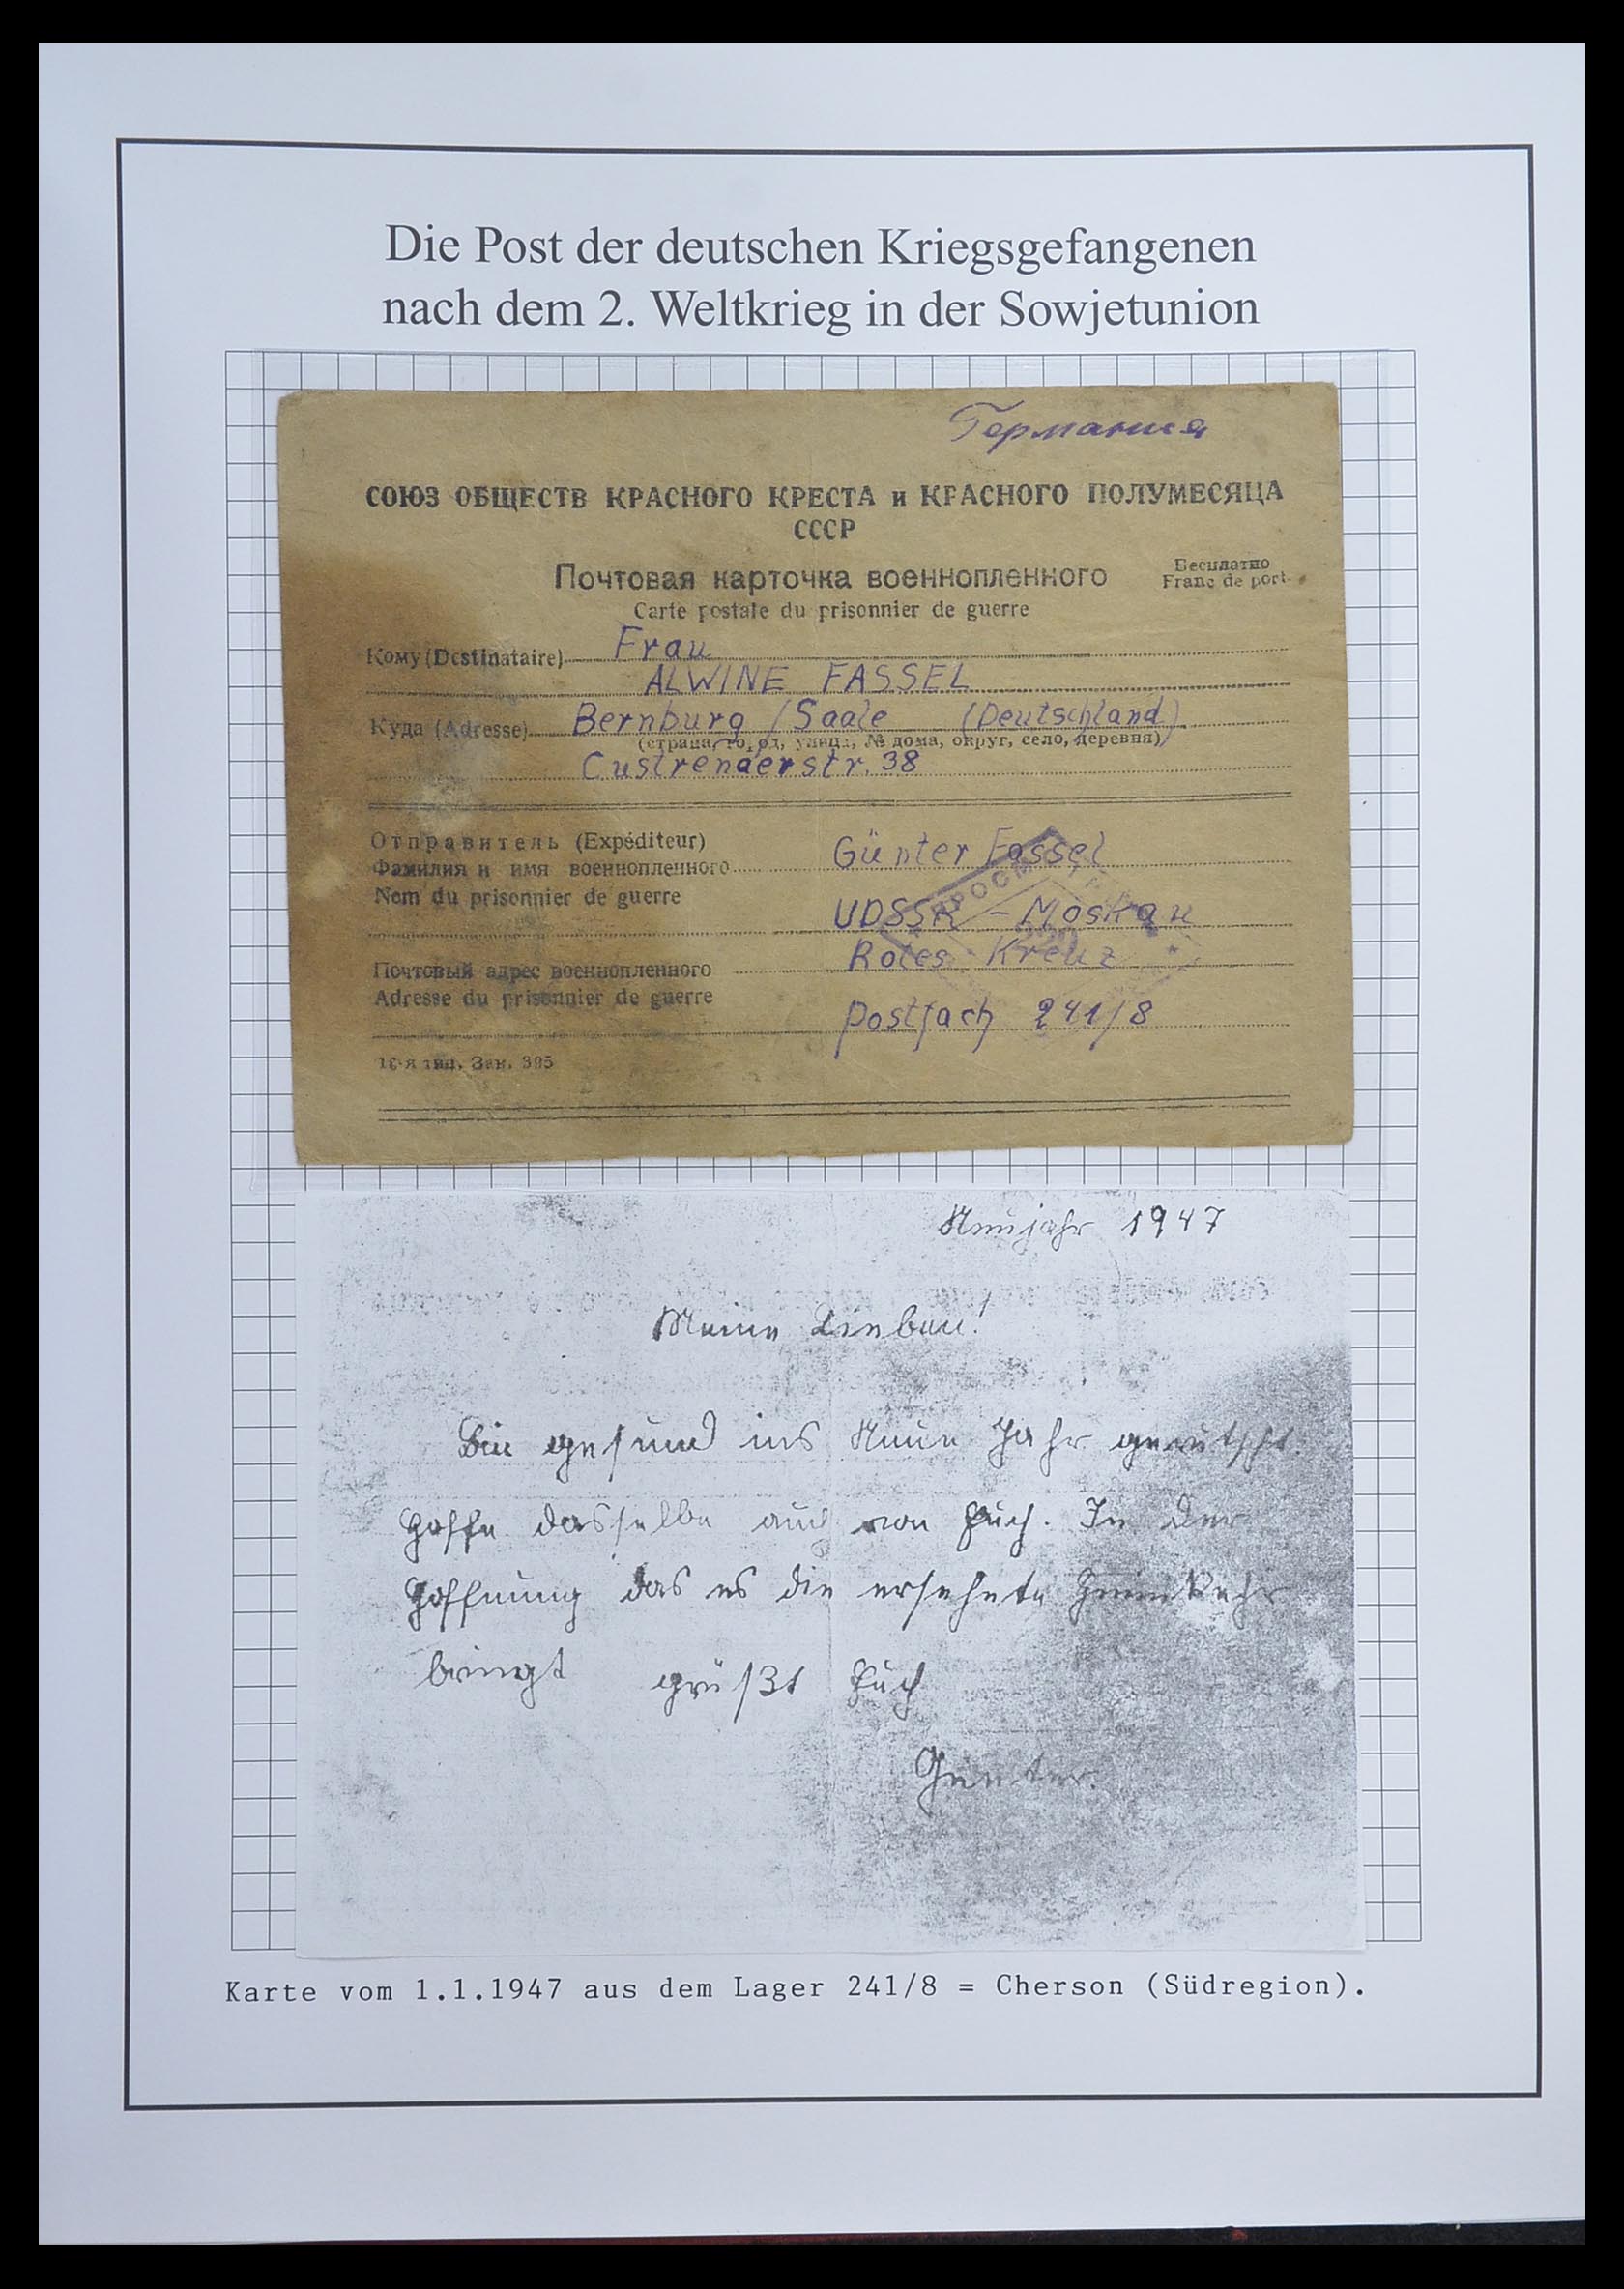 Die Post der deutschen Kriegsgefangenen
nach dem 2. Weltkrieg in der Sowjetunion
Германия
СОЮЗ ОБЩЕСТВ КРАСНОГО КРЕСТА и КРАСНОГО ПОЛУМЕСЯЦА
СССР
Почтовая карточка военнопленного
Бесплатно
Franc de port
Carte postale du prisonnier de guerre
Кому (Destinataire) Frau
ALWINE FASSEL
Куда (Adresse) Bernburg / Saale (Deutschland)
(страна, город, улица, № дома, округ, село, деревня)
Custrenaerstr. 38
Отправитель (Expéditeur)
Фамилия и имя военнопленного Günter Fassel
Nom du prisonnier de guerre
UDSSR - Moskau
Почтовый адрес военнопленного Rotes Kreuz
Adresse du prisonnier de guerre
Postfach 241/8
16-я тип. Зак. 395
Neujahr 1947
Meine Lieben!
Bin gesund ins Neue Jahr gerutscht.
Hoffe dasselbe auch von Euch. In der
Hoffnung das es die ersehnte Heimkehr
bringt grüßt Euch
Günter.
Karte vom 1.1.1947 aus dem Lager 241/8 = Cherson (Südregion).